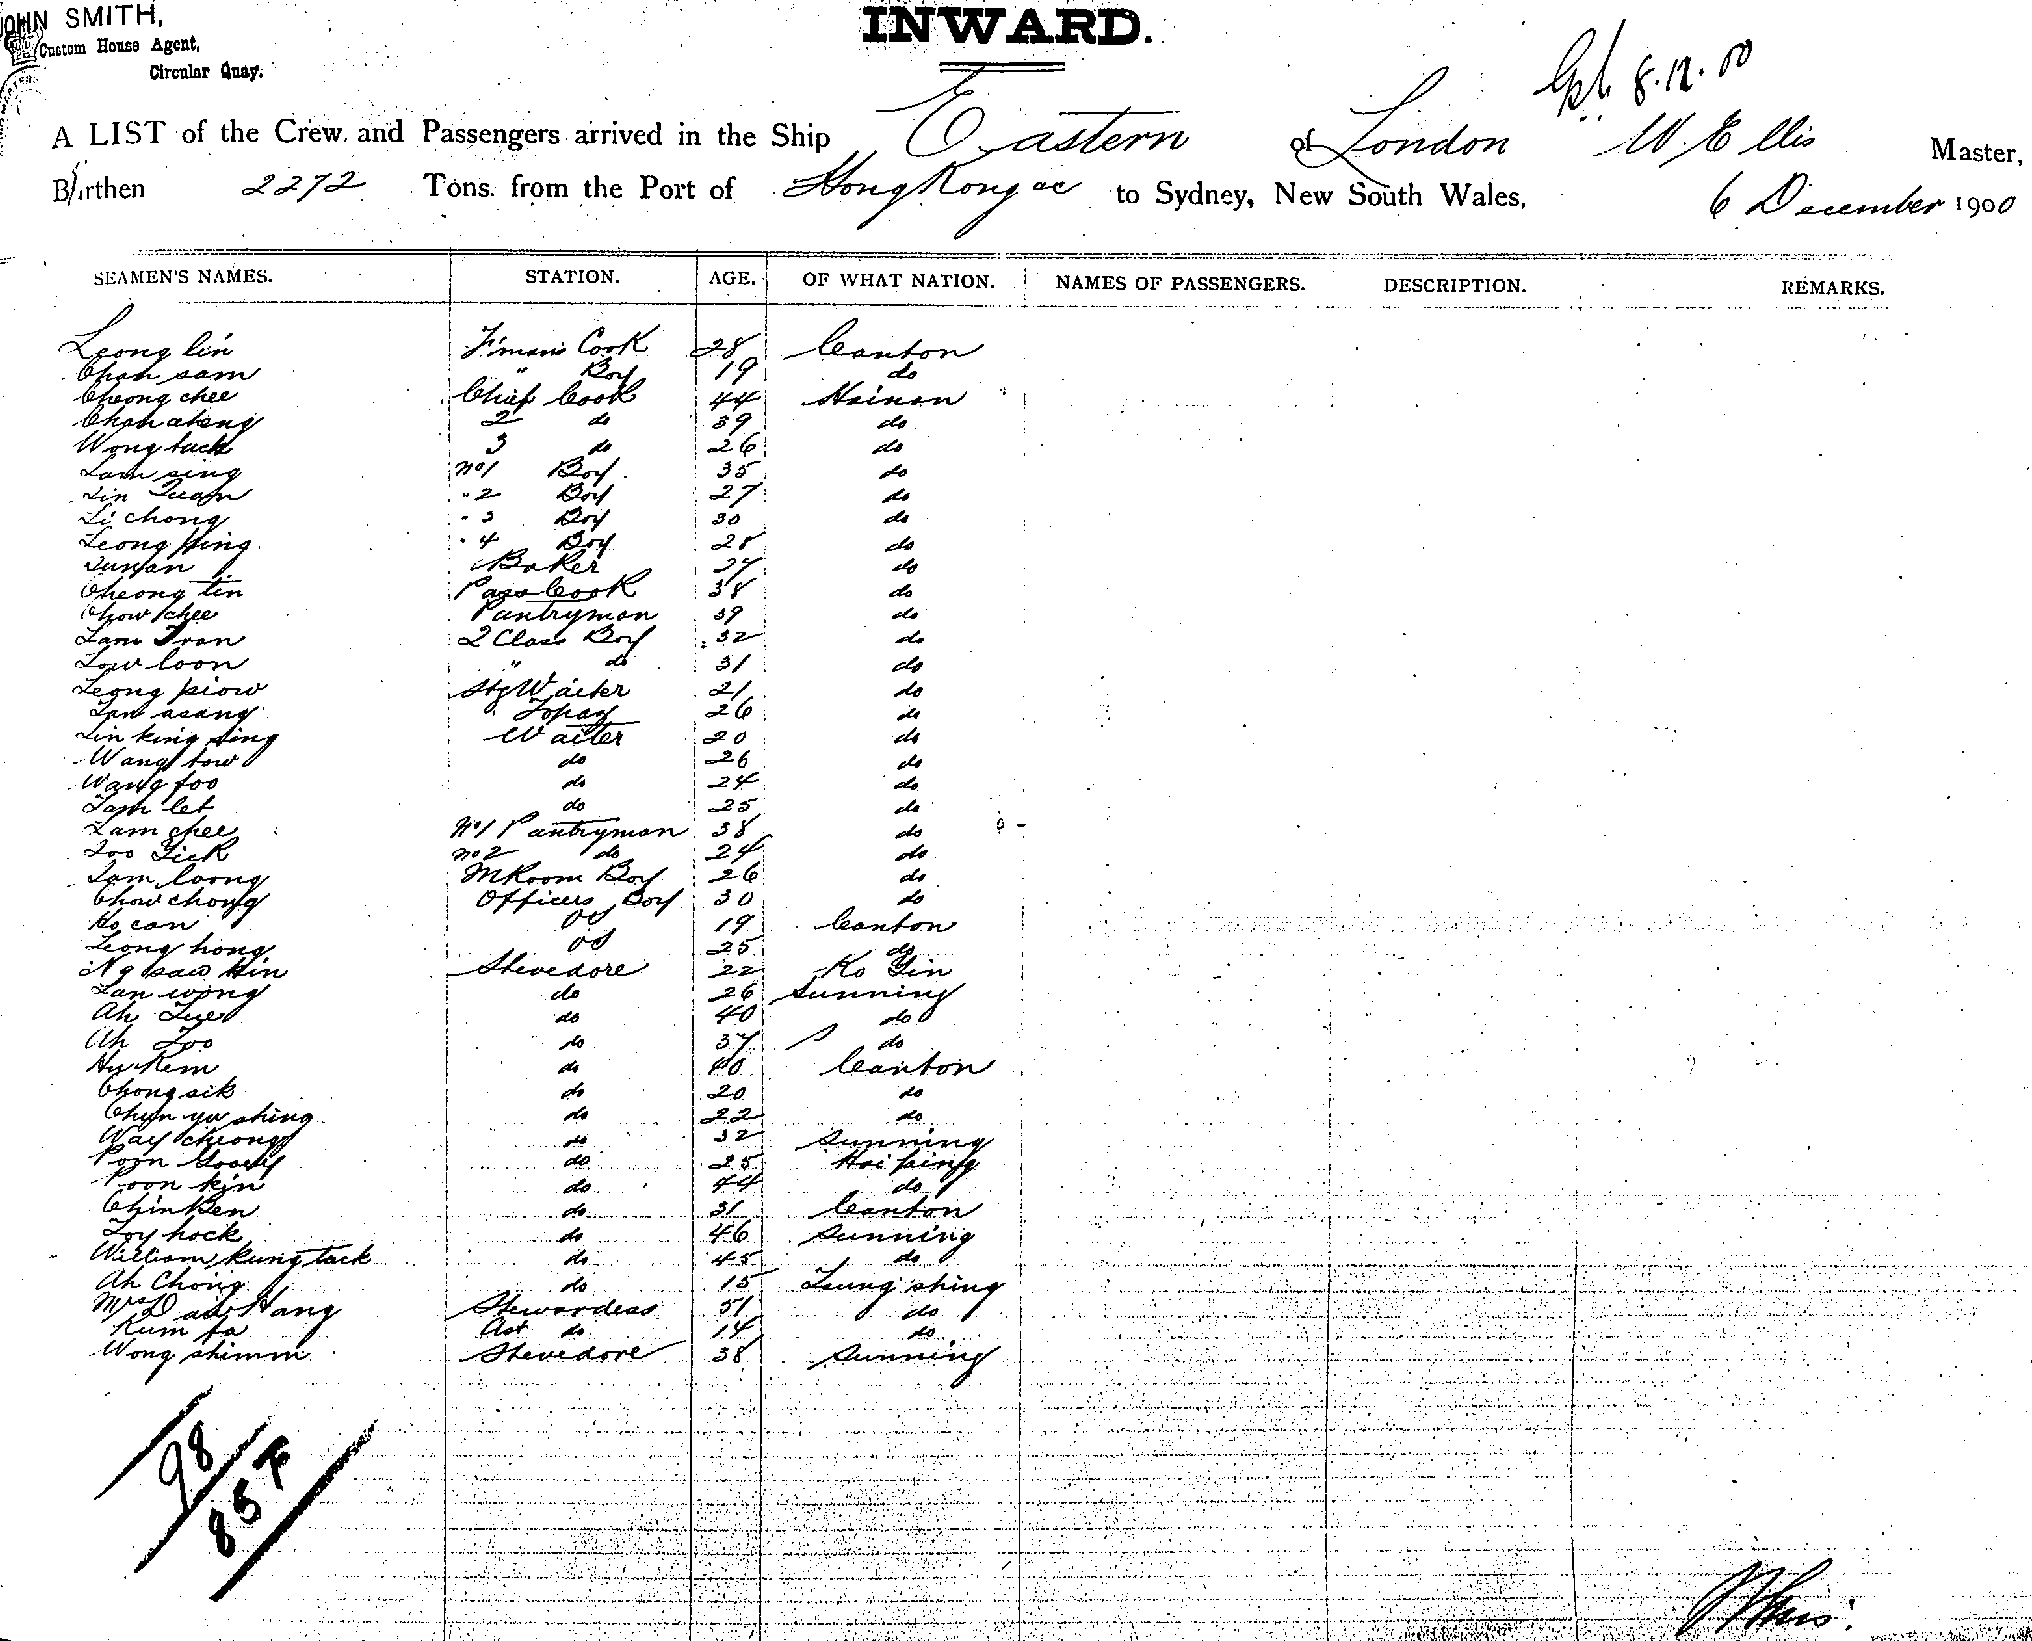 JOHN SMITH,
Custom House Agent,
Circular Quay.
INWARD.
8.12.00
A LIST of the Crew and Passengers arrived in the Ship Eastern of London W. Ellis Master,
Burthen 2272 Tons from the Port of Hong Kong &c to Sydney, New South Wales, 6 December 1900
SEAMEN'S NAMES. STATION. AGE. OF WHAT NATION. NAMES OF PASSENGERS. DESCRIPTION. REMARKS.
Leong lin F'mans Cook 28 Canton
Chan sam " Boy 19 do
Cheong chee Chief Cook 44 Hainan
Chan aheng 2 do 39 do
Wong tuck 3 do 26 do
Lam sing No1 Boy 35 do
Lin Quan " 2 Boy 27 do
Li chong " 3 Boy 30 do
Leong hing " 4 Boy 28 do
Baker 27 do
Cheong tin Pass Cook 38 do
Chow chee Pantryman 39 do
Lam Tran 2 Class Boy 32 do
Low loon " do 31 do
Leong piow Stg Waiter 21 do
Lan asang Topaz 26 do
Lin king sing Waiter 20 do
Wang tow do 26 do
Wang foo do 24 do
Lam let do 25 do
Lam chee No1 Pantryman 38 do
Loo Yick No2 do 24 do
Lam loong M Room Boy 26 do
Chow chong Officers Boy 30 do
Ho can do 19 Canton
Leong hong do 25 do
Ng saw Hin Stevedore 22 Ko Yin
Lan wong do 26 Sunning
Ah Lye do 40 do
Ah Loo do 37 do
Hy Kem do 40 Canton
Chong sik do 20 do
Chun yu shing do 22 do
Way cheong do 32 Sunning
Poon do 25 Hoi ping
Poon kin do 44 do
Chin Ken do 31 Canton
Loy hock do 46 Sunning
William Kung tack do 45 do
Ah Chong do 15 Leung shing
Mrs Daw Hang Stewardess 51 do
Kum fa Ast do 14 do
Wong shimm Stevedore 38 Sunning
98
85 F
W Ellis